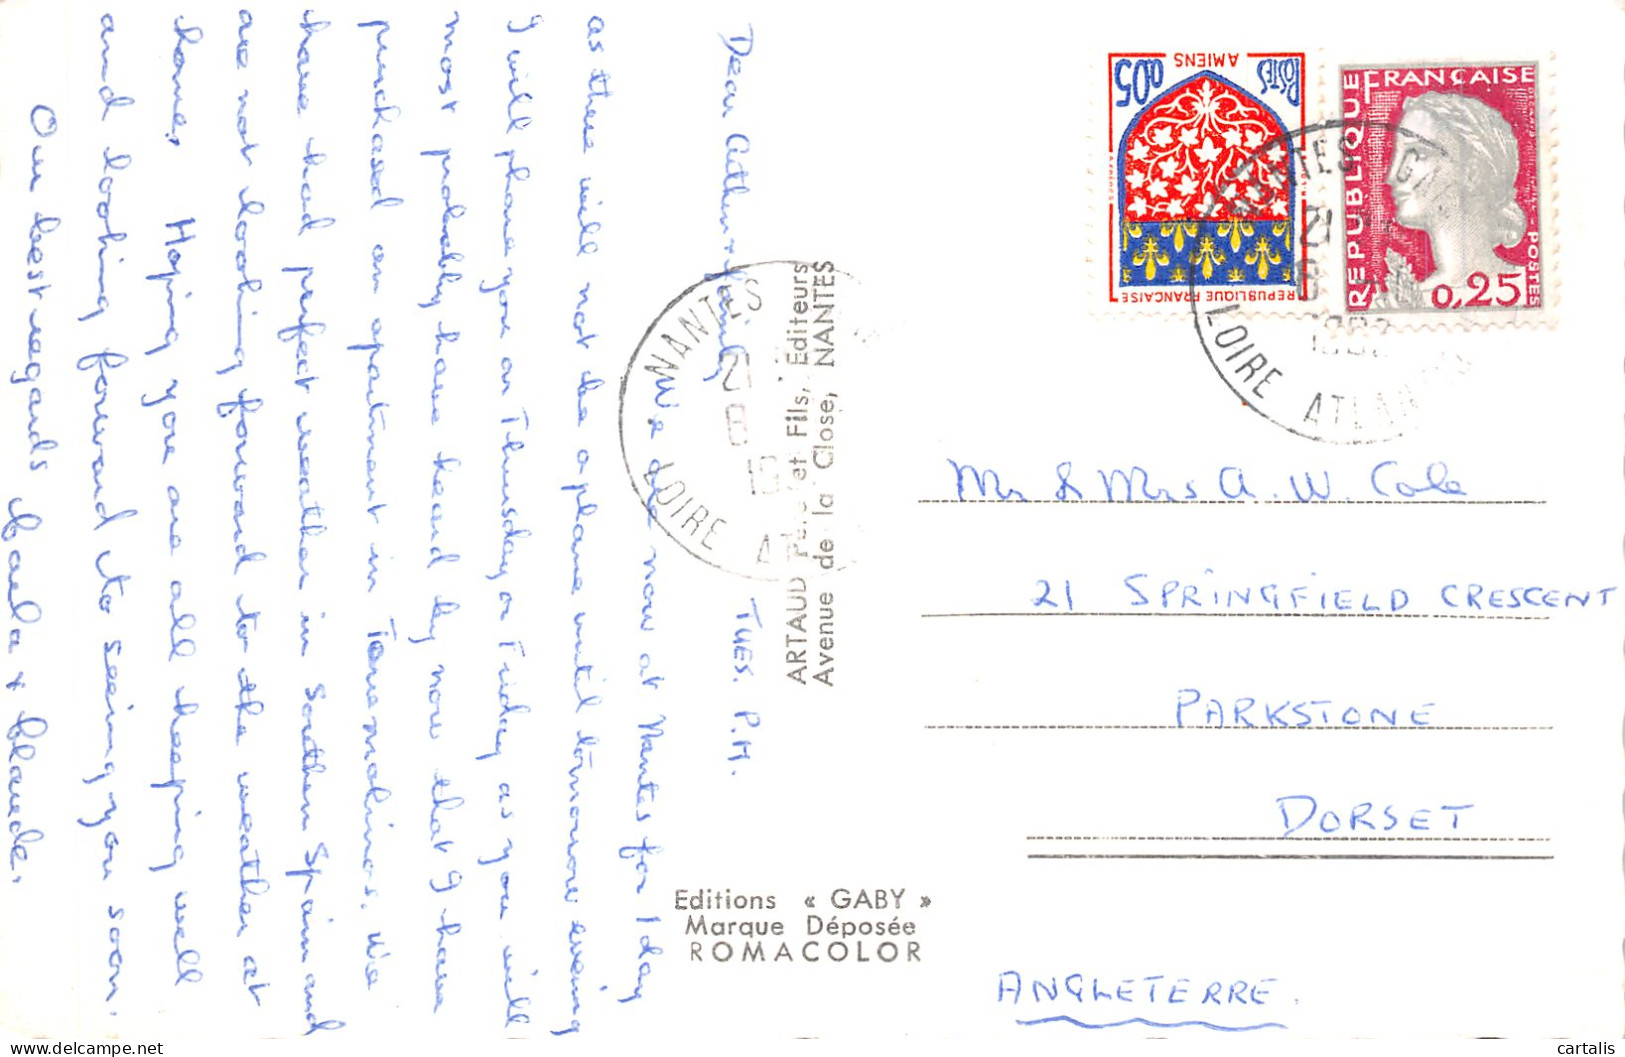 Dear Arthur & family, Tues. P.M.
We are now at Nantes for 1 day
as there will not be a plane until tomorrow evening
I will phone you on Thursday or Friday as you will
most probably have heard by now that I have
purchased an apartment in Torremolinos. We
have had perfect weather in Southern Spain and
are not looking forward to the weather at
home. Hoping you are all keeping well
and looking forward to seeing you soon.
Our best regards & Claude.
ARTAUD Père et Fils, Editeurs
Avenue de la Close, NANTES
NANTES
21
LOIRE
Editions « GABY »
Marque Déposée
ROMACOLOR
AMIENS
POSTES 0,05
REPUBLIQUE FRANÇAISE
REPUBLIQUE FRANÇAISE
POSTES
0,25
NANTES GARE
21
LOIRE ATLANTIQUE
Mr & Mrs A. W. Cole
21 SPRINGFIELD CRESCENT
PARKSTONE
DORSET
ANGLETERRE.
cartalis